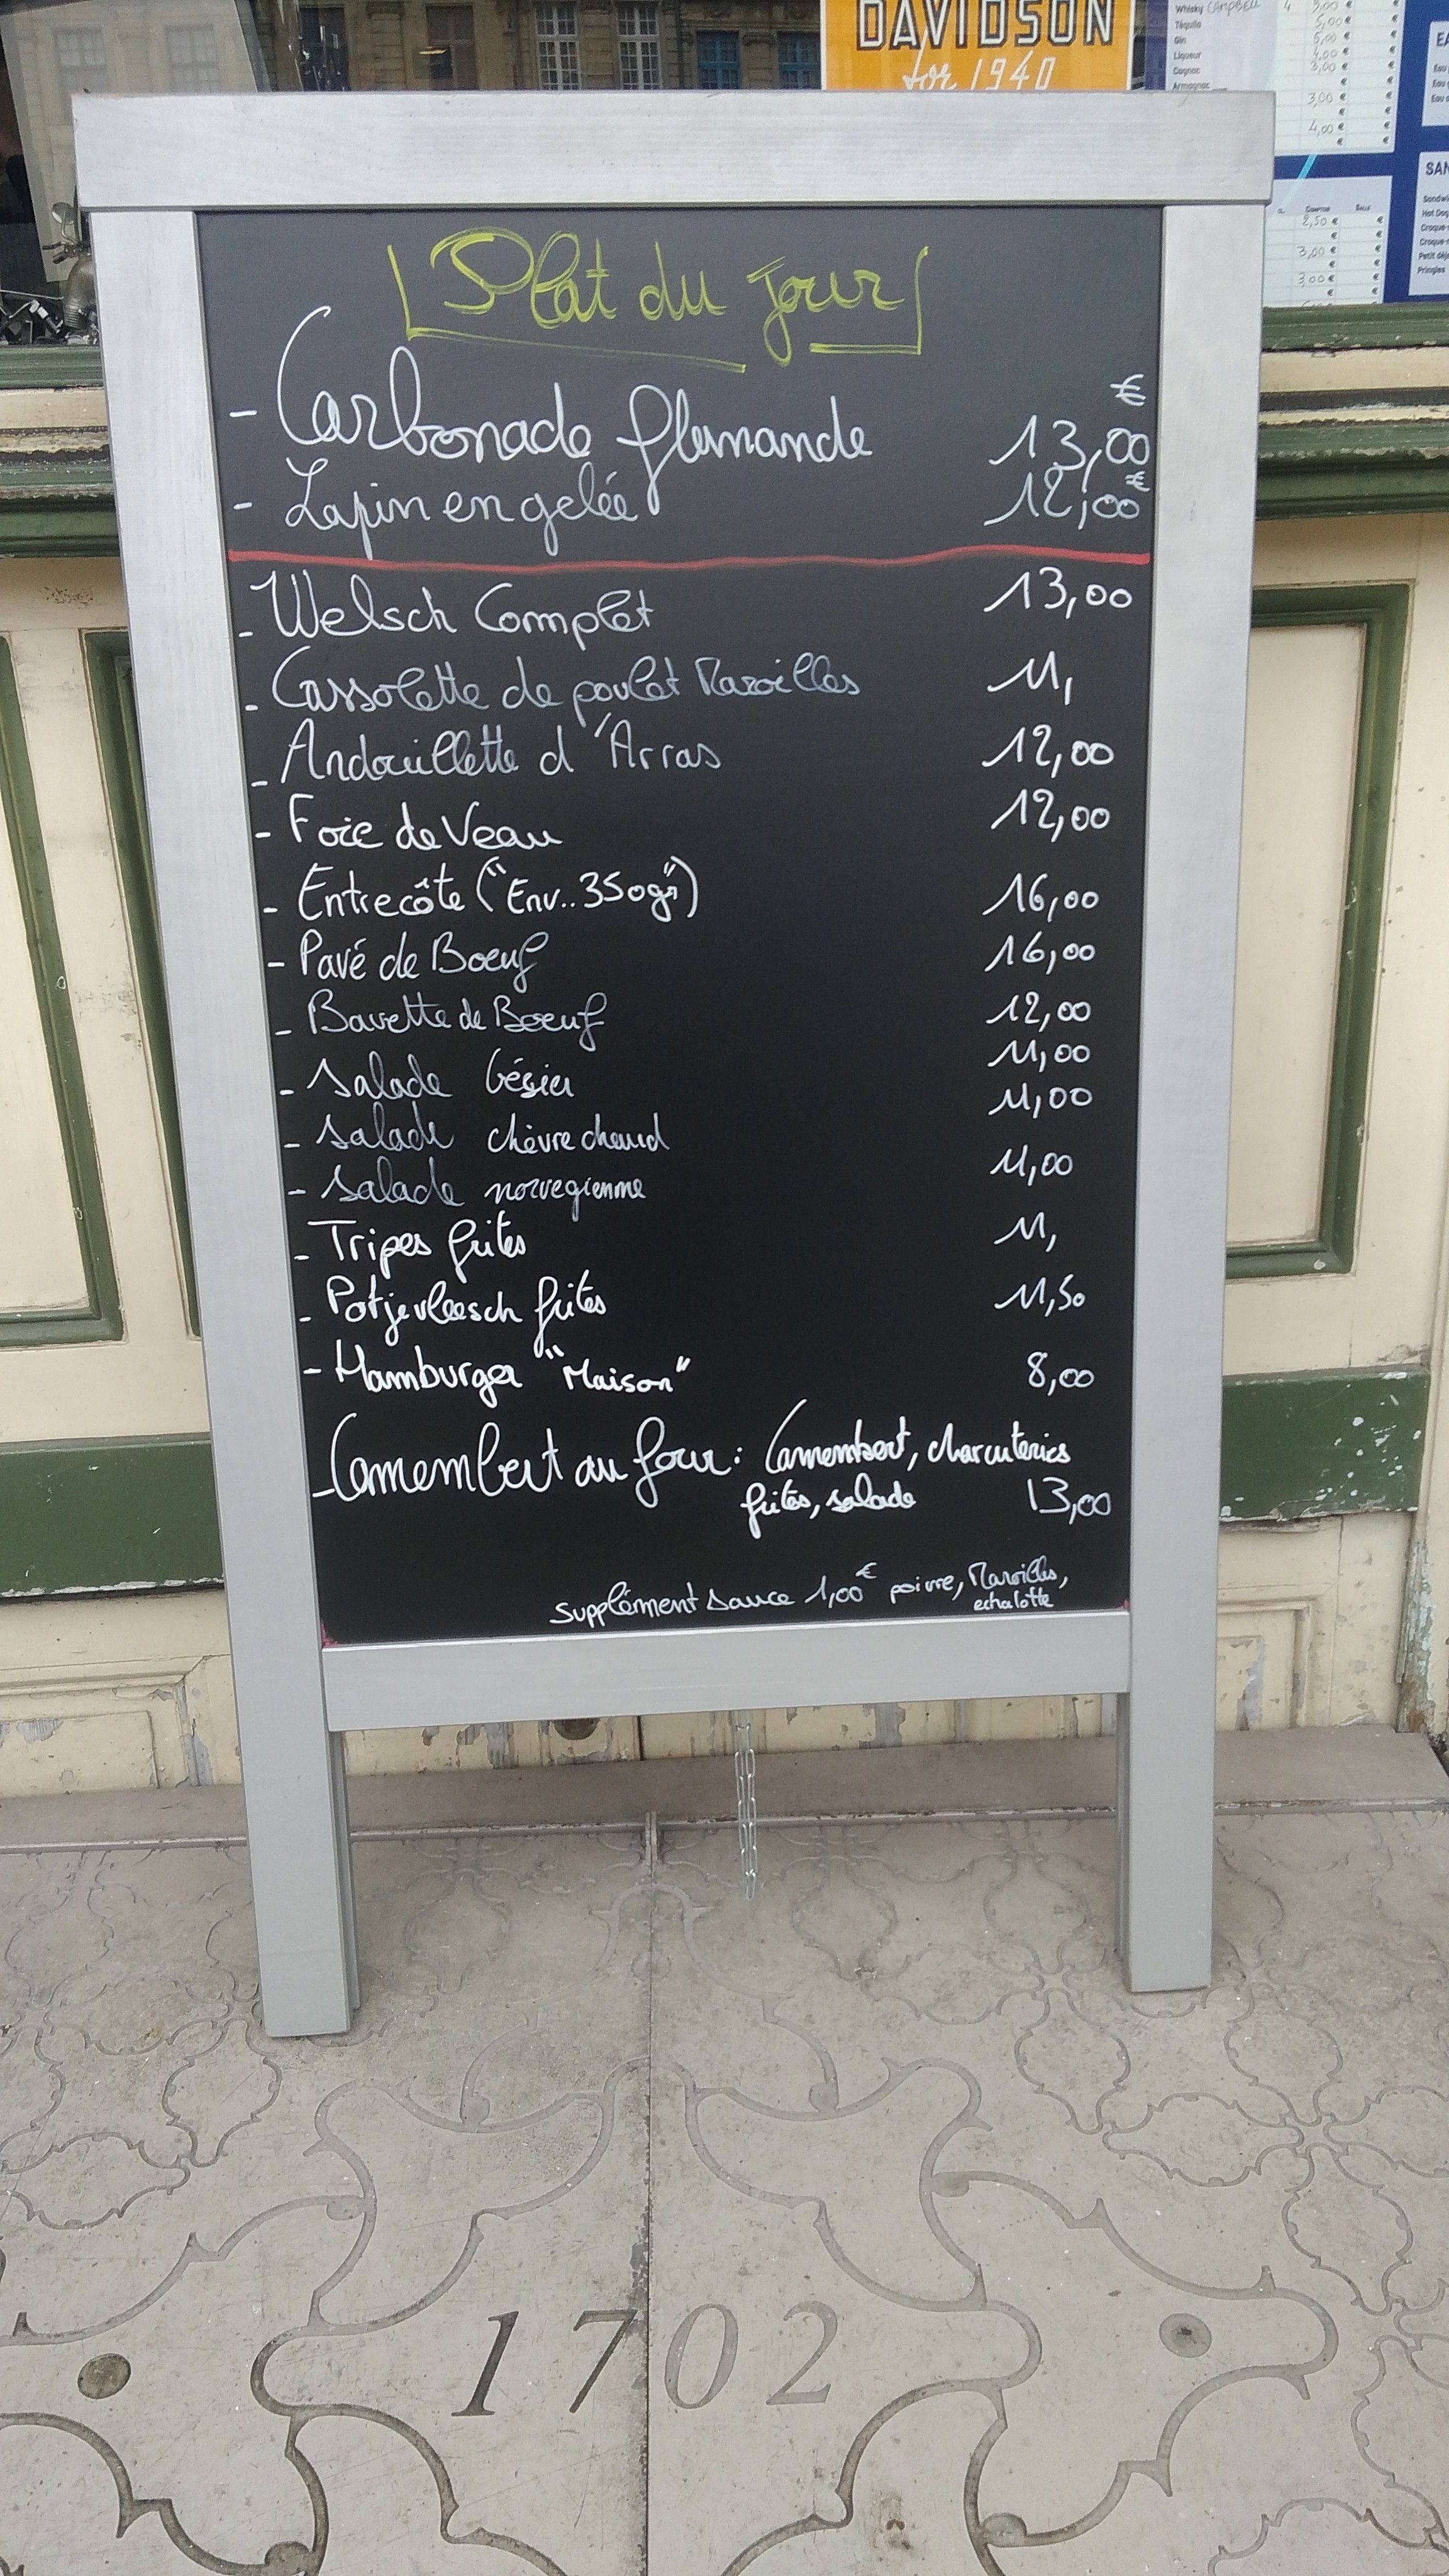 DAVIDSON
for 1940
Whisky CAMPBELL 4 5,00 € €
Téquila 5,00 € €
Gin 5,00 € €
Liqueur 4,00 € €
Cognac 3,00 € €
Armagnac € €
3,00 € €
4,00 € €
€ €
SAN
Comptoir Salle
2,50 € €
€ €
3,00 € €
€ €
3,00 € €
Hot Dog
Croque-
Croque-
Petit déj
Pringles
Plat du jour
- Carbonade flamande 13,00 €
- Lapin en gelée 12,00 €
- Welsch Complet 13,00
- Cassolette de poulet Maroilles 11,
- Andouillette d'Arras 12,00
- Foie de Veau 12,00
- Entrecôte ("Env..350gr") 16,00
- Pavé de Boeuf 16,00
- Bavette de Boeuf 12,00
- Salade Gésier 11,00
- Salade chèvre chaud 11,00
- Salade norvegienne 11,00
- Tripes frites 11,
- Potjevleesch frites 11,50
- Hamburger "Maison" 8,00
- Camembert au four : Camembert, charcuteries
frites, salade 13,00
Supplément sauce 1,00 € poivre, Maroilles,
echalotte
1702